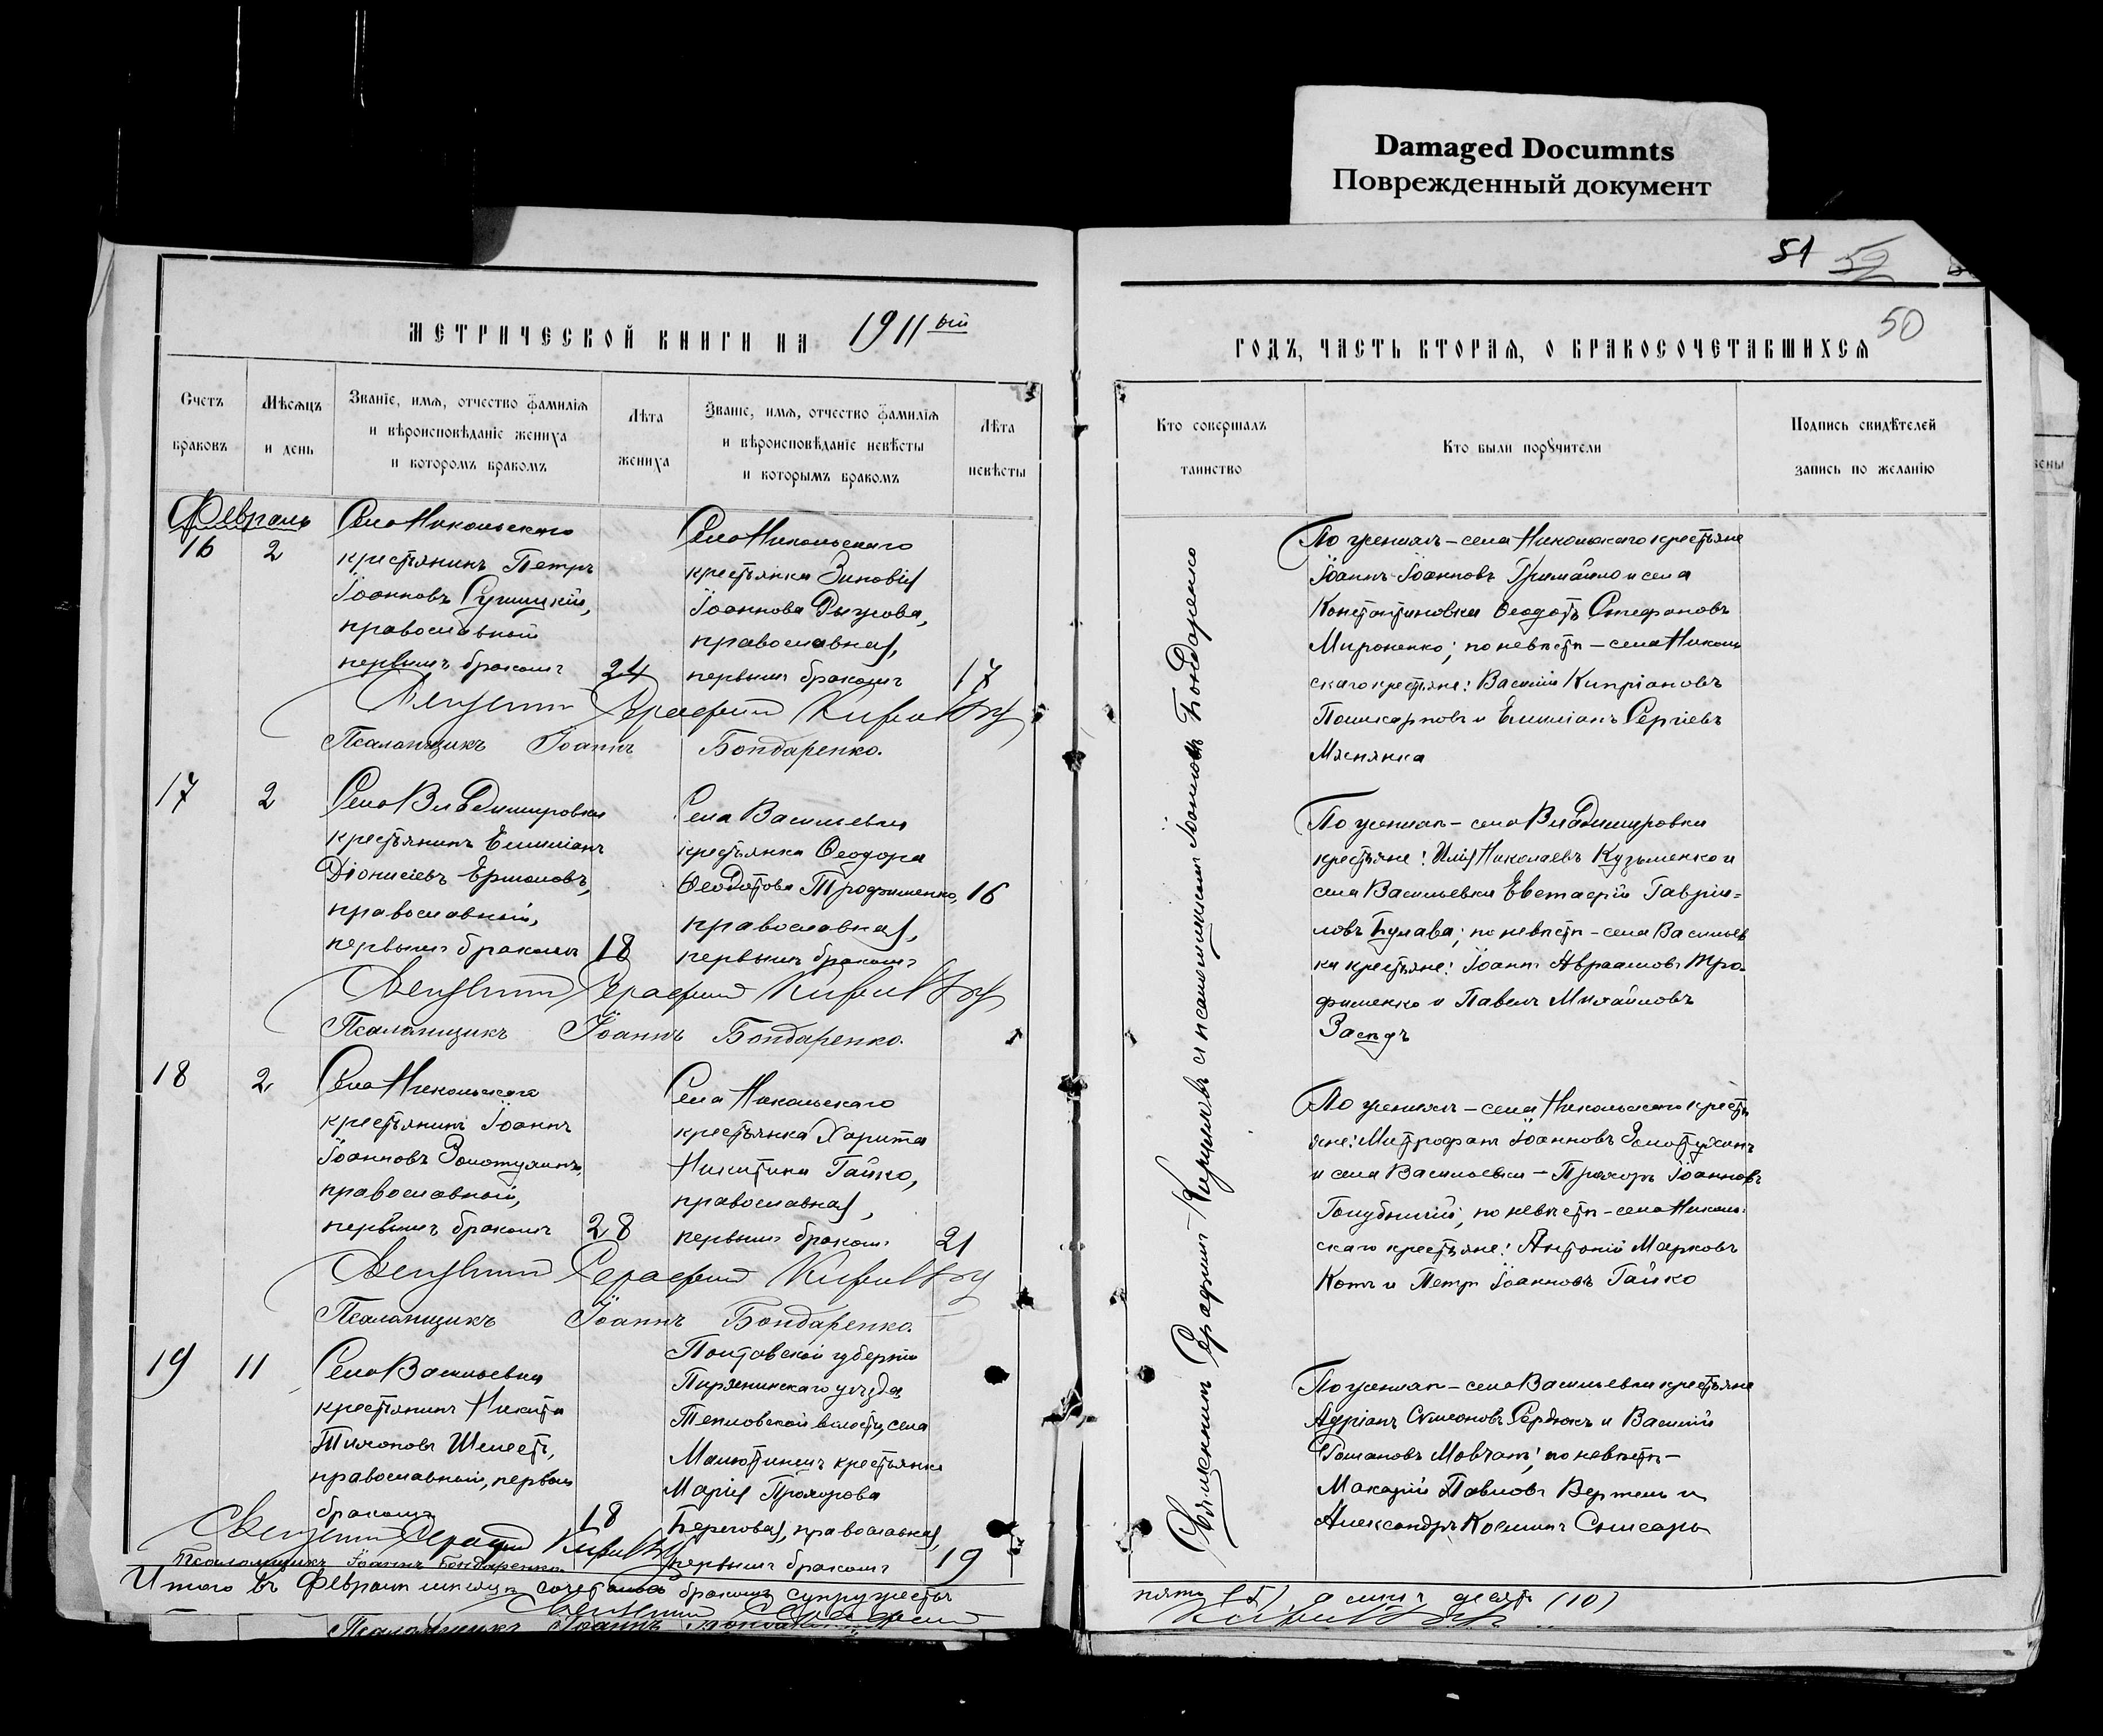 Damaged Documnts
Поврежденный документ
51 52
50
МЕТРИЧЕСКОЙ КНИГИ НА 1911ый
ГОДЪ, ЧАСТЬ ВТОРАЯ, О БРАКОСОЧЕТАВШИХСЯ
Счетъ
браковъ
Мѣсяцъ
и день
Званіе, имя, отчество фамилія
и вѣроисповѣданіе жениха
и которомъ бракомъ
Лѣта
жениха
Званіе, имя, отчество фамилія
и вѣроисповѣданіе невѣсты
и которымъ бракомъ
Лѣта
невѣсты
Кто совершалъ
таинство
Кто были поручители
Подпись свидѣтелей
запись по желанію
Февраль
16
2
Села Никольскаго
крестьянинъ Петръ
Іоанновъ
православный
первымъ бракомъ
24
Села Никольскаго
крестьянка Зиновія
Іоаннова
православная,
первымъ бракомъ
17
Священникъ Серафимъ Кириловъ
Псаломщикъ Іоаннъ Бондаренко.
17
2
Села Владимировки
крестьянинъ Емиліанъ
Діонисіевъ Ермоловъ,
православный,
первымъ бракомъ
18
Села Васильевки
крестьянка Ѳеодора
Ѳеодотова Трофименко,
православная,
первымъ бракомъ
16
Священникъ Серафимъ Кириловъ
Псаломщикъ Іоаннъ Бондаренко.
18
2
Села Никольскаго
крестьянинъ Іоаннъ
Іоанновъ Золотухинъ,
православный,
первымъ бракомъ
28
Села Никольскаго
крестьянка Харита
Никитина Гайко,
православная,
первымъ бракомъ
21
Священникъ Серафимъ Кириловъ
Псаломщикъ Іоаннъ Бондаренко.
19
11
Села Васильевки
крестьянинъ Никита
Тихоновъ Шелестъ,
православный, первымъ
бракомъ
18
Полтавской губерніи
Пирятинскаго уѣзда
Тепловской волости, села
крестьянка
Марія Прохорова
Береговая, православная,
первымъ бракомъ
19
Священникъ Серафимъ Кириловъ
Псаломщикъ Іоаннъ Бондаренко
Итого въ Февралѣ мѣсяцѣ бракомъ супружествъ
Священникъ Серафимъ
Псаломщикъ Іоаннъ Бондаренко
Священникъ Серафимъ Кириловъ съ псаломщикомъ Іоанномъ Бондаренко
По женихѣ – села Никольскаго крестьяне
Іоаннъ Іоанновъ Гримайло и села
Константиновки Ѳеодотъ Стефановъ
Мироненко; по невѣстѣ – села Николь
скаго крестьяне: Василій Кипріановъ
и Емиліанъ Сергіевъ
По женихѣ – села Владимировки
крестьяне: Илія Николаевъ Кузьменко и
села Васильевки Евстафій Гаврии=
ловъ Булава; по невѣстѣ – села Васильев
ки крестьяне: Іоаннъ Авраамовъ Тро-
фименко и Павелъ Михайловъ
По женихѣ – села Никольскаго кресть
яне: Митрофанъ Іоанновъ Золотухинъ
и села Васильевки – Прохоръ Іоанновъ
Голубничій; по невѣстѣ – села Николь-
скаго крестьяне: Антоній Марковъ
Котъ и Петръ Іоанновъ Гайко
По женихѣ – села Васильевки крестьяне
Адріанъ Симеоновъ Сердюкъ и Василій
Романовъ Мовчанъ; по невѣстѣ –
Макарій Павловъ и
Александръ Косминъ Слисарь
пять (5), а лицъ десять (10)
Кириловъ